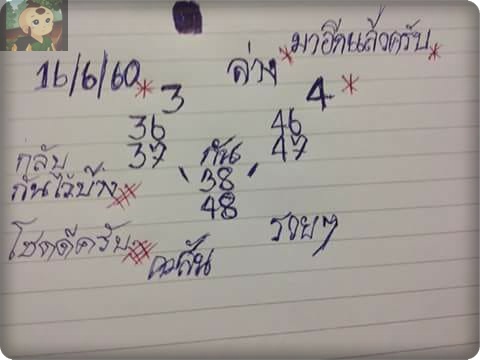 มาอีกแล้วครับ
16/6/60 ล่าง
3 4
36 46
37 กัน 47
กลับ 38
กันไว้บ้าง 48
โชคดีครับ รวยๆ